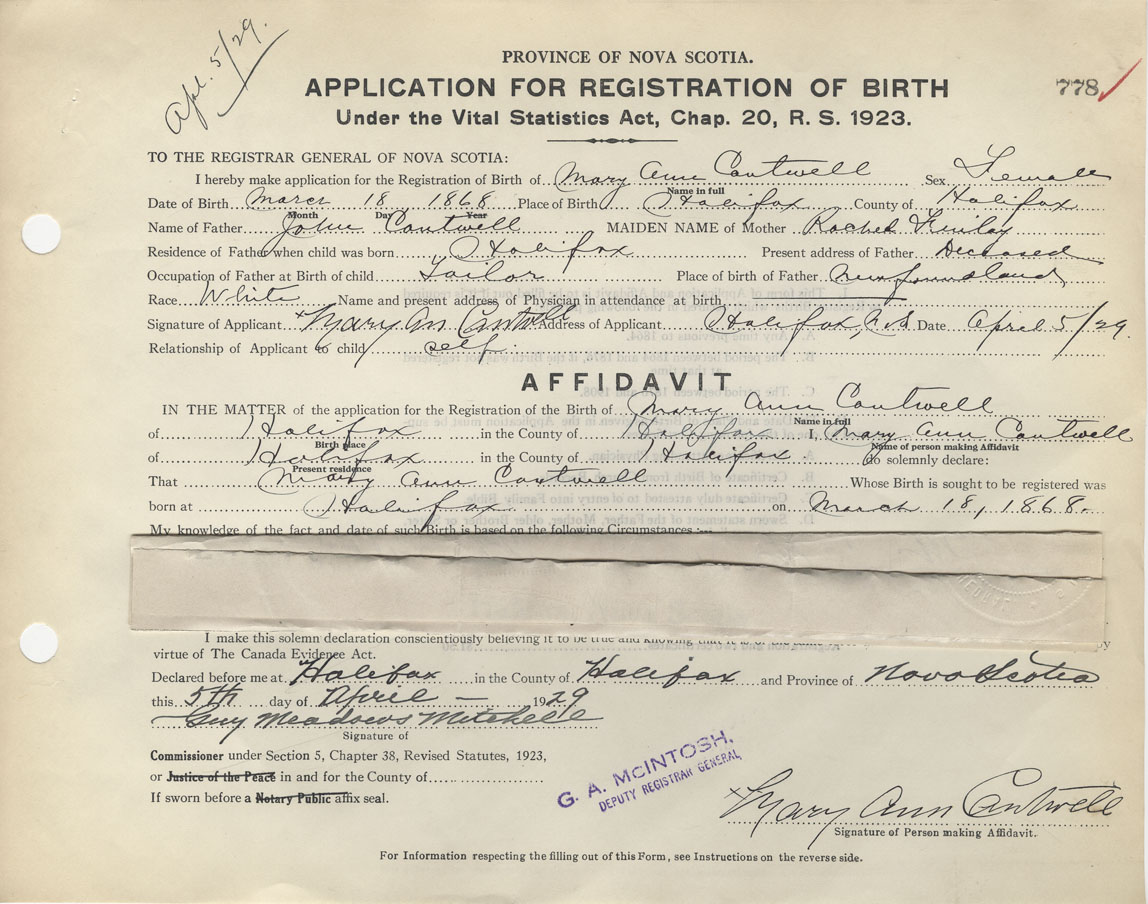 Apl. 5/29.
PROVINCE OF NOVA SCOTIA.
APPLICATION FOR REGISTRATION OF BIRTH
778
Under the Vital Statistics Act, Chap. 20, R. S. 1923.
TO THE REGISTRAR GENERAL OF NOVA SCOTIA:
I hereby make application for the Registration of Birth of Mary Ann Cantwell Sex Female
Name in full
Date of Birth March 18 1868 Place of Birth Halifax County of Halifax
Month Day Year
Name of Father John Cantwell MAIDEN NAME of Mother Rachel Finlay
Residence of Father when child was born Halifax Present address of Father Deceased
Occupation of Father at Birth of child Tailor Place of birth of Father Newfoundland
Race White Name and present address of Physician in attendance at birth
Signature of Applicant x Mary Ann Cantwell Address of Applicant Halifax, N.S. Date April 5/29.
Relationship of Applicant to child self
AFFIDAVIT
IN THE MATTER of the application for the Registration of the Birth of Mary Ann Cantwell
Name in full
of Halifax in the County of Halifax I, Mary Ann Cantwell
Birth place Name of person making Affidavit
of Halifax in the County of Halifax do solemnly declare:
Present residence
That Mary Ann Cantwell Whose Birth is sought to be registered was
born at Halifax on March 18, 1868.
My knowledge of the fact and date of such Birth is based on the following Circumstances
I make this solemn declaration conscientiously believing it to be true and knowing that it is of the
virtue of The Canada Evidence Act.
Declared before me at Halifax in the County of Halifax and Province of Nova Scotia
this 5th day of April 1929
Guy Meadows Mitchell
Signature of
Commissioner under Section 5, Chapter 38, Revised Statutes, 1923,
or Justice of the Peace in and for the County of
If sworn before a Notary Public affix seal.
G. A. McINTOSH,
DEPUTY REGISTRAR GENERAL
x Mary Ann Cantwell
Signature of Person making Affidavit.
For Information respecting the filling out of this Form, see Instructions on the reverse side.